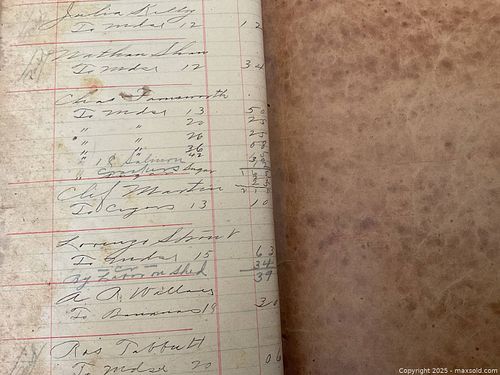 Julia Kelly
To mdse 12 1 2
Nathan Shaw
To mdse 12 3 4
Chas Farnsworth
To Mdse 13 50
" " 20 25
" " 26 25
" " 36 08
" 1 B Salmon 42
" crackers Sugar
Clif Martin
To Cigars 13 10
Lorenzo Strout
To Sundres 15 63
By Labor on Shed 34
39
A R Willars
To Bananas 19
Ras Tibbett
To mdse 20 06
Copyright 2025 - maxsold.com